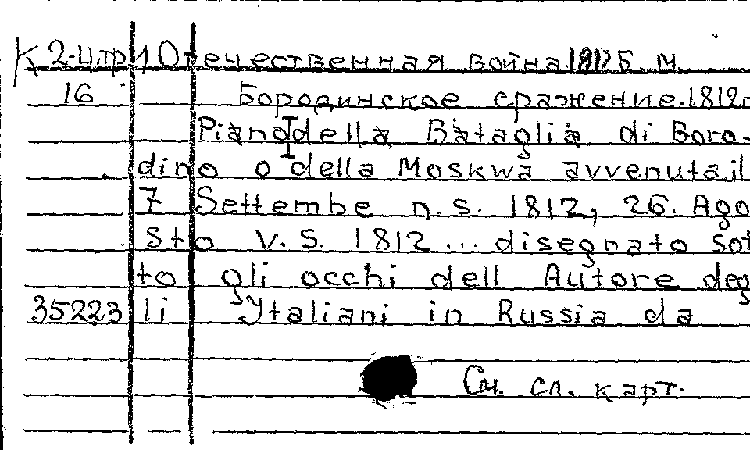 К 2-Итр/1 Отечественная война 1812 Б. М.
16 Бородинское сражение. 1812г
Piano della Bataglia di Boro-
dino o della Moskwa avvenuta il
7 Settembe n. s. 1812, 26. Ago
sto v. s. 1812... disegnato sot
to gli occhi dell Autore deg
35223 li Italiani in Russia da
См. сл. карт.